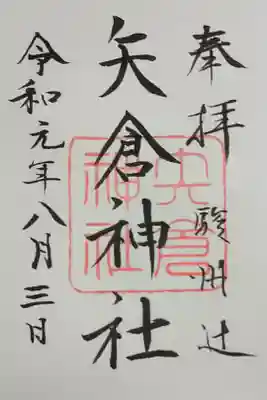 奉拝 駿州辻
矢倉神社
令和元年八月三日
矢倉神社